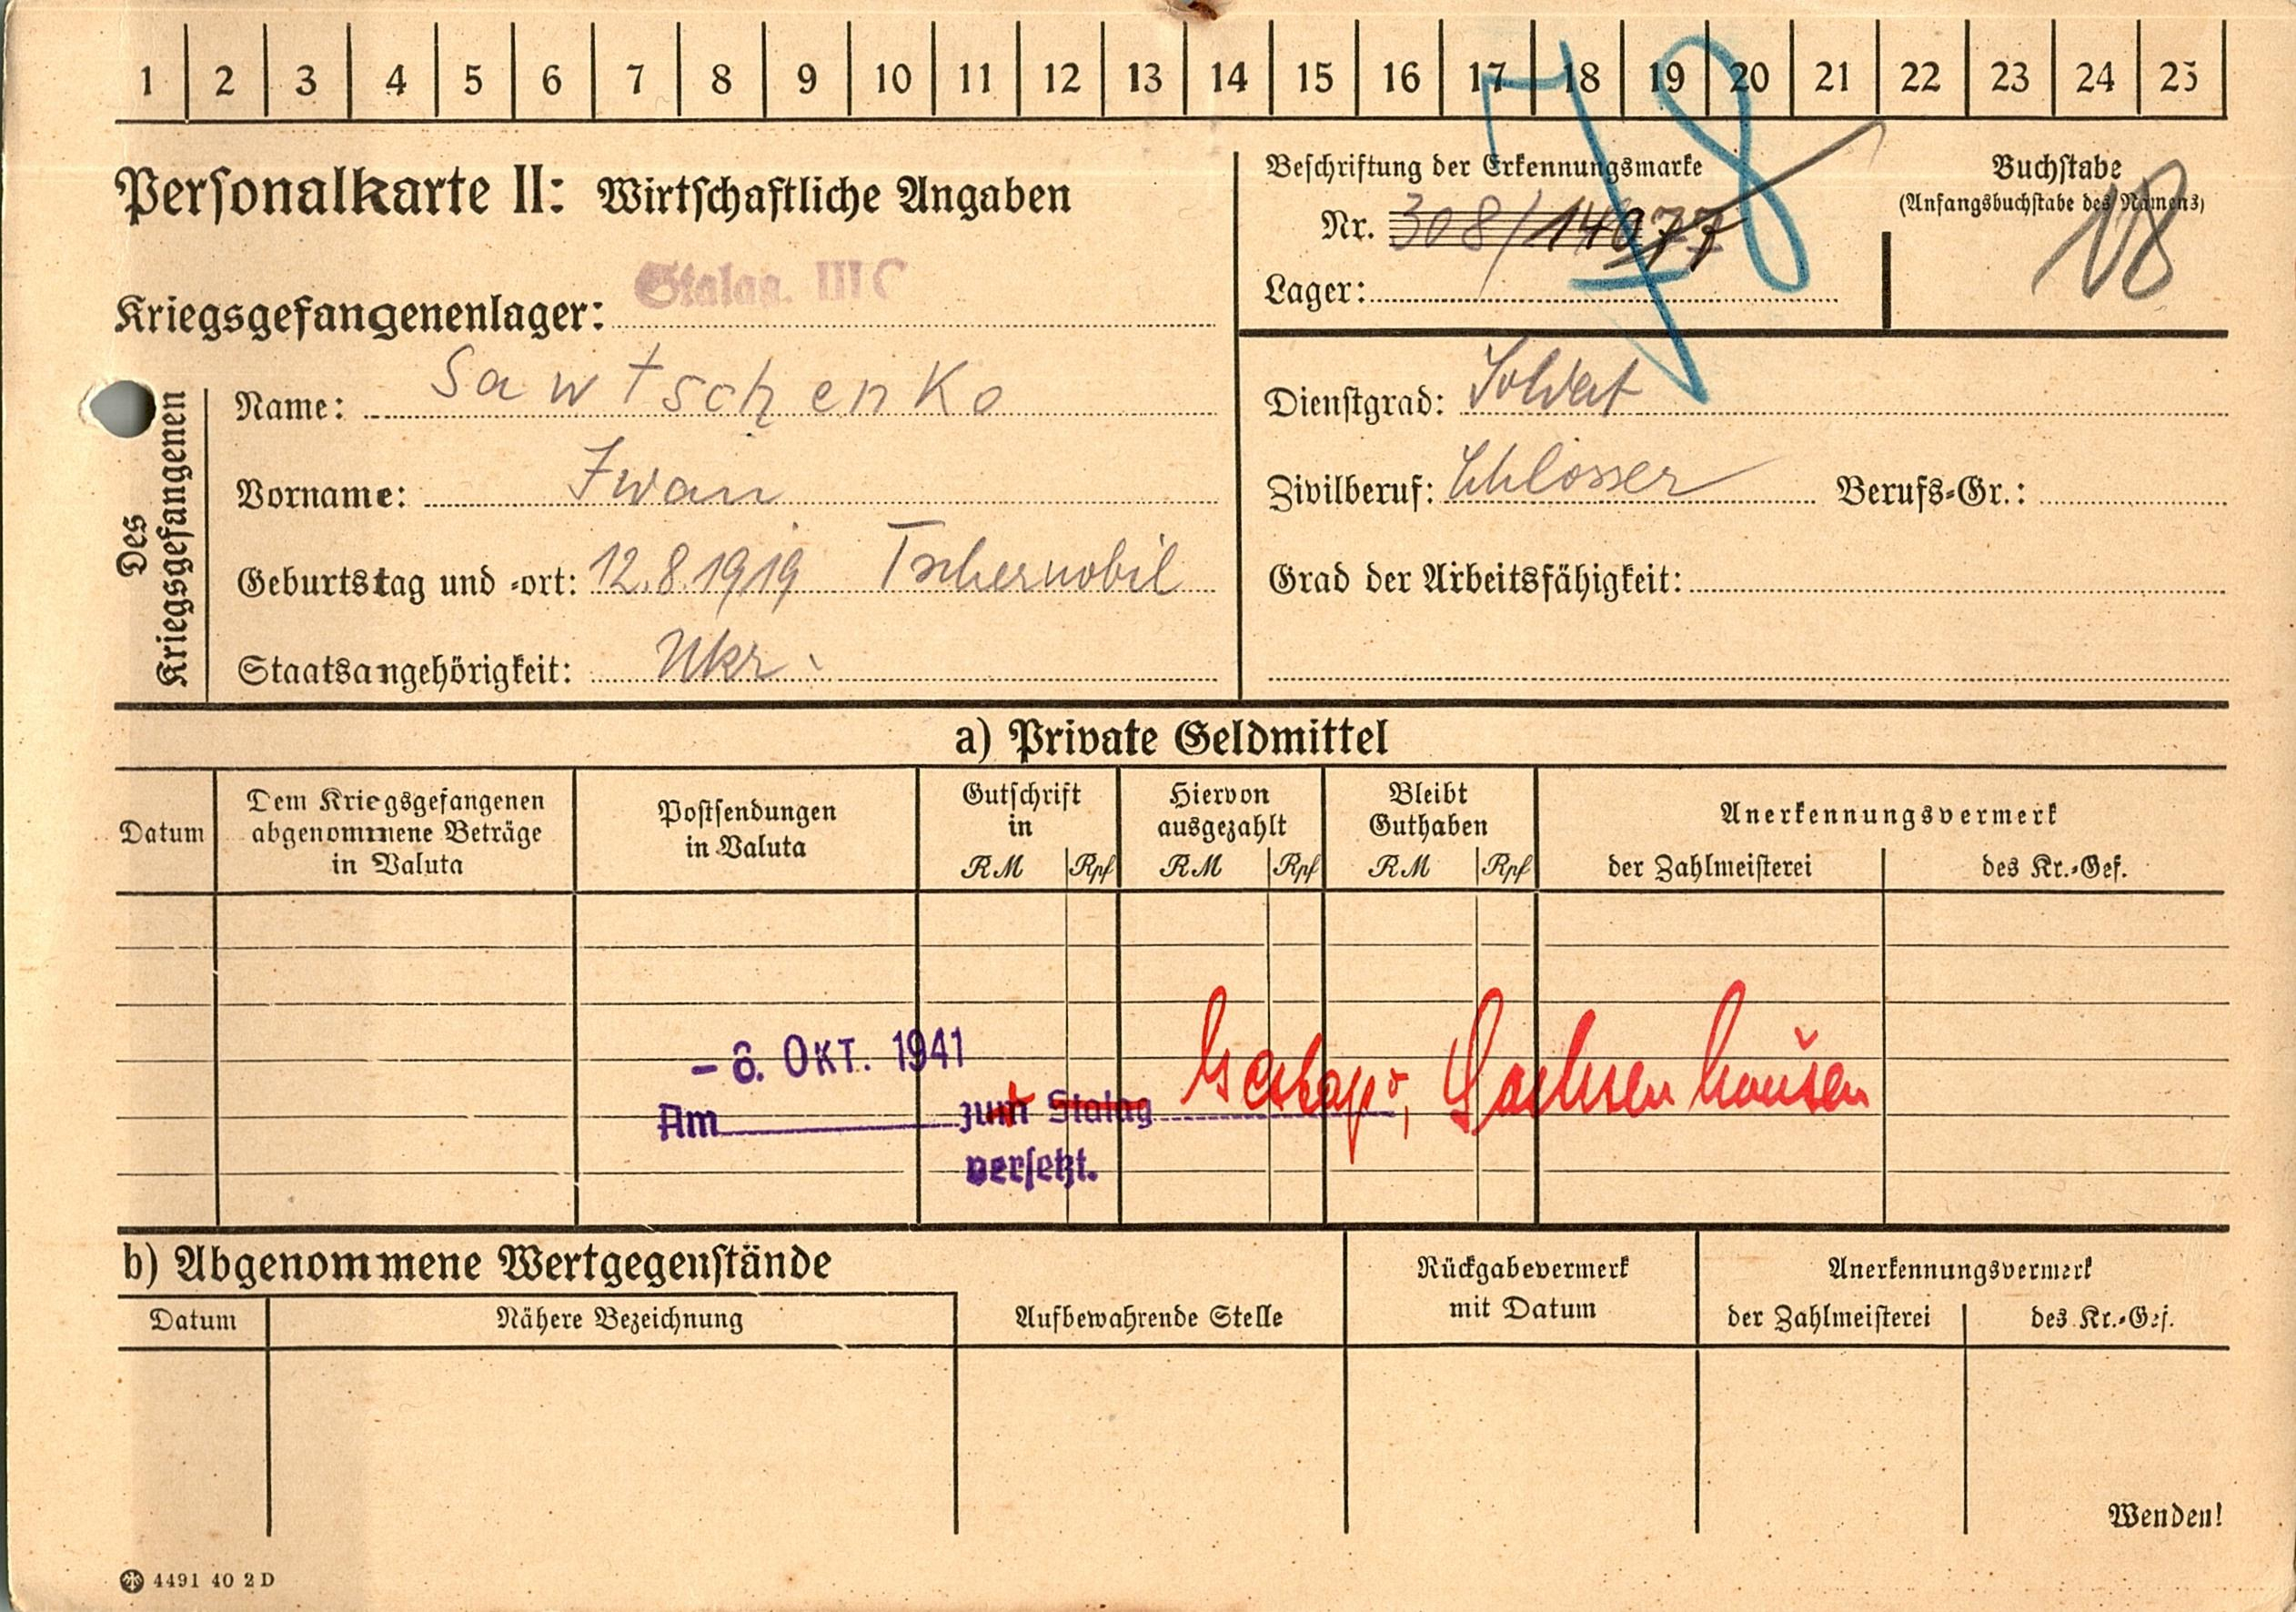 1 2 3 4 5 6 7 8 9 10 11 12 13 14 15 16 17 18 19 20 21 22 23 24 25
78
Personalkarte II: Wirtschaftliche Angaben
Beschriftung der Erkennungsmarke
Nr. 308/14077
Lager:
Buchstabe
(Anfangsbuchstabe des Namens)
18
Kriegsgefangenenlager: Stalag. III C
Des Kriegsgefangenen
Name: Sawtschenko
Vorname: Iwan
Geburtstag und -ort: 12.8.1919 Tschernobil
Staatsangehörigkeit: Ukr.
Dienstgrad: Soldat
Zivilberuf: Schlosser Berufs-Gr.:
Grad der Arbeitsfähigkeit:
a) Private Geldmittel
Datum
Dem Kriegsgefangenen
abgenommene Beträge
in Valuta
Postsendungen
in Valuta
Gutschrift
in
RM Rpf
Hiervon
ausgezahlt
RM Rpf
Bleibt
Guthaben
RM Rpf
Anerkennungsvermerk
der Zahlmeisterei des Kr.-Gef.
- 6. OKT. 1941
Am zum Stalag Gestapo, Sachsenhausen
versetzt.
b) Abgenommene Wertgegenstände
Datum Nähere Bezeichnung
Aufbewahrende Stelle
Rückgabevermerk
mit Datum
Anerkennungsvermerk
der Zahlmeisterei des Kr.-Gef.
Wenden!
4491 40 2 D